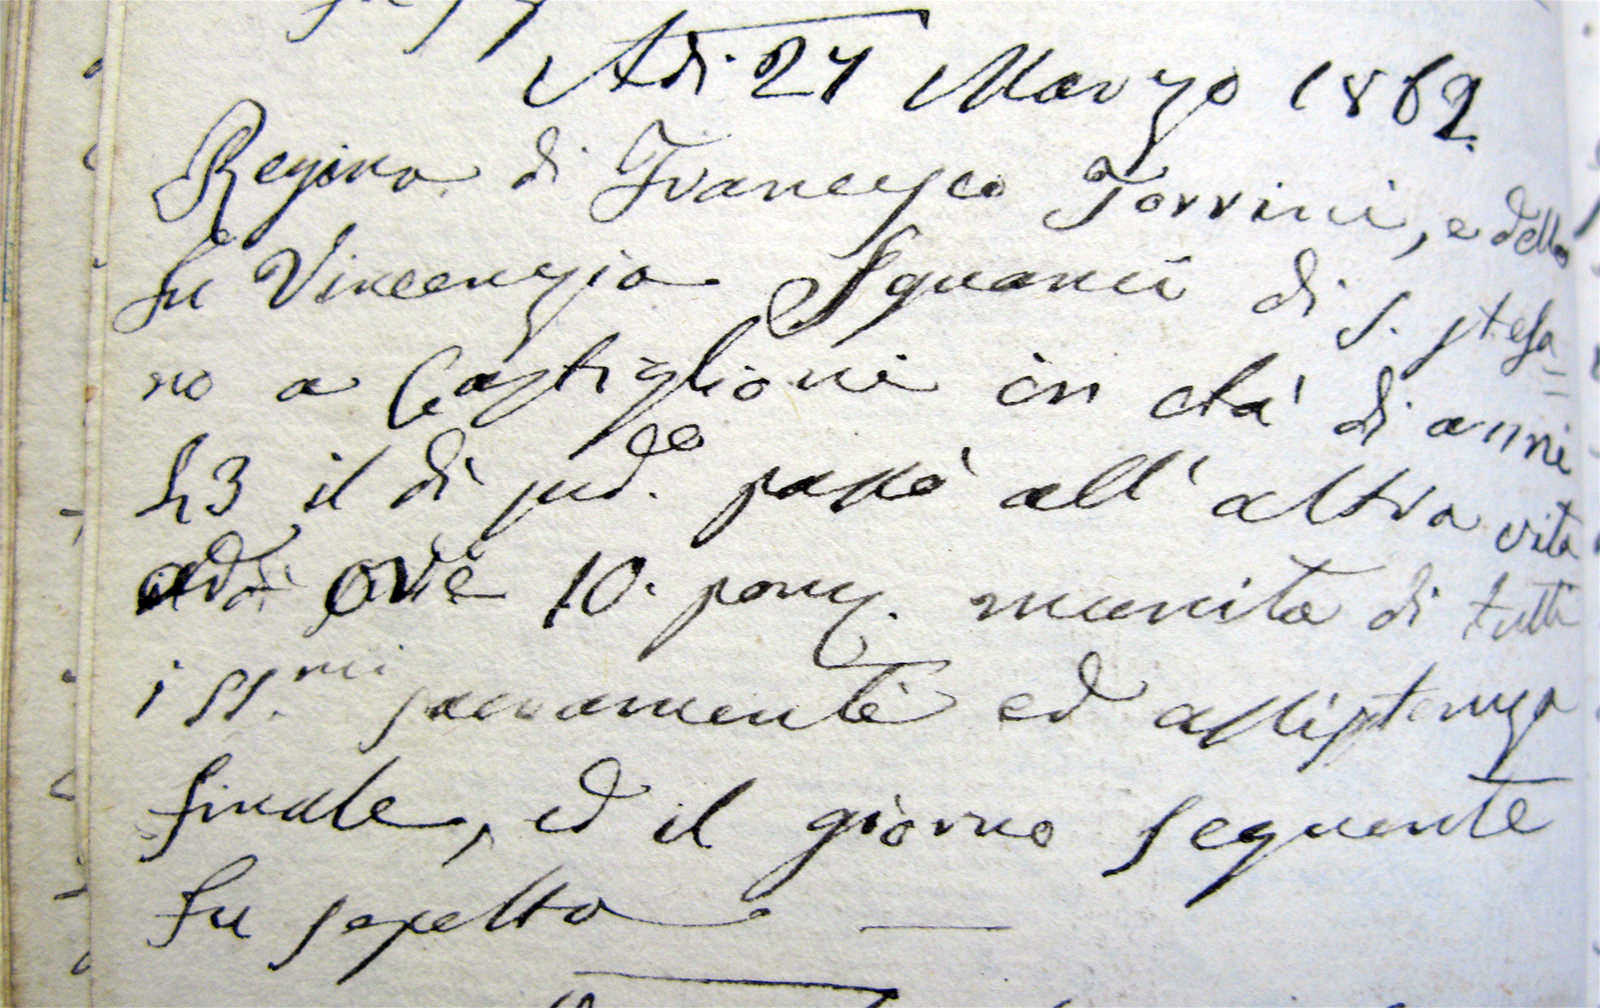 Adi 27 Marzo 1862
Regina di Francesco Torrini, e della
fu Vincenzia Squanci di S. Stefa=
no a Castiglioni in età di anni
43 il dì sud.º passò all' altra vita
ore 10. pom. munita di tutti
i SS.mi sacramenti ed assistenza
finale, ed il giorno seguente
fu sepolta